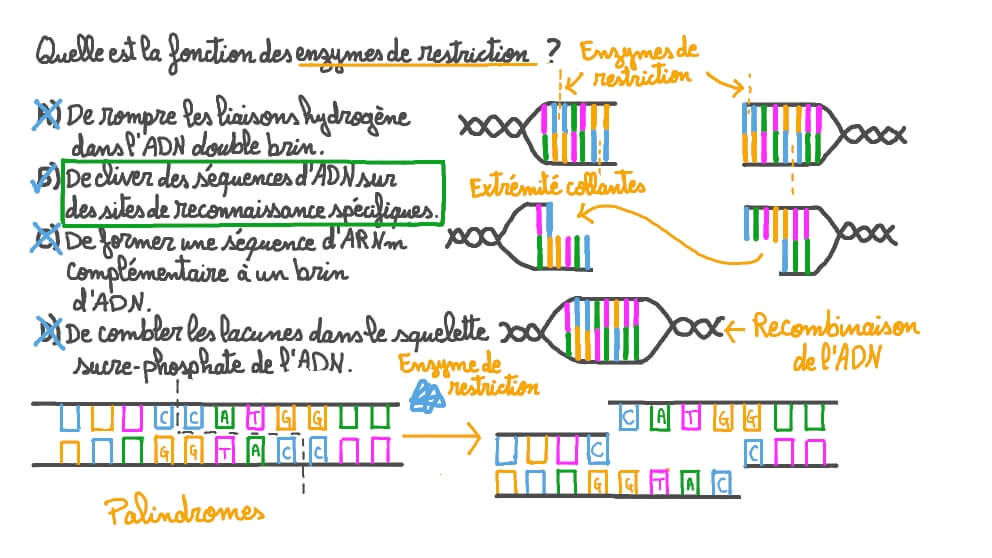 Quelle est la fonction des enzymes de restriction ?
A) De rompre les liaisons hydrogène
dans l'ADN double brin.
B) De cliver des séquences d'ADN sur
des sites de reconnaissance spécifiques.
C) De former une séquence d'ARNm
complémentaire à un brin
d'ADN.
D) De combler les lacunes dans le squelette
sucre-phosphate de l'ADN.
Enzymes de
restriction
Extrémité collantes
Recombinaison
de l'ADN
Enzyme de
restriction
C C A T G G
G G T A C C
Palindromes
C A T G G
C
C
G G T A C